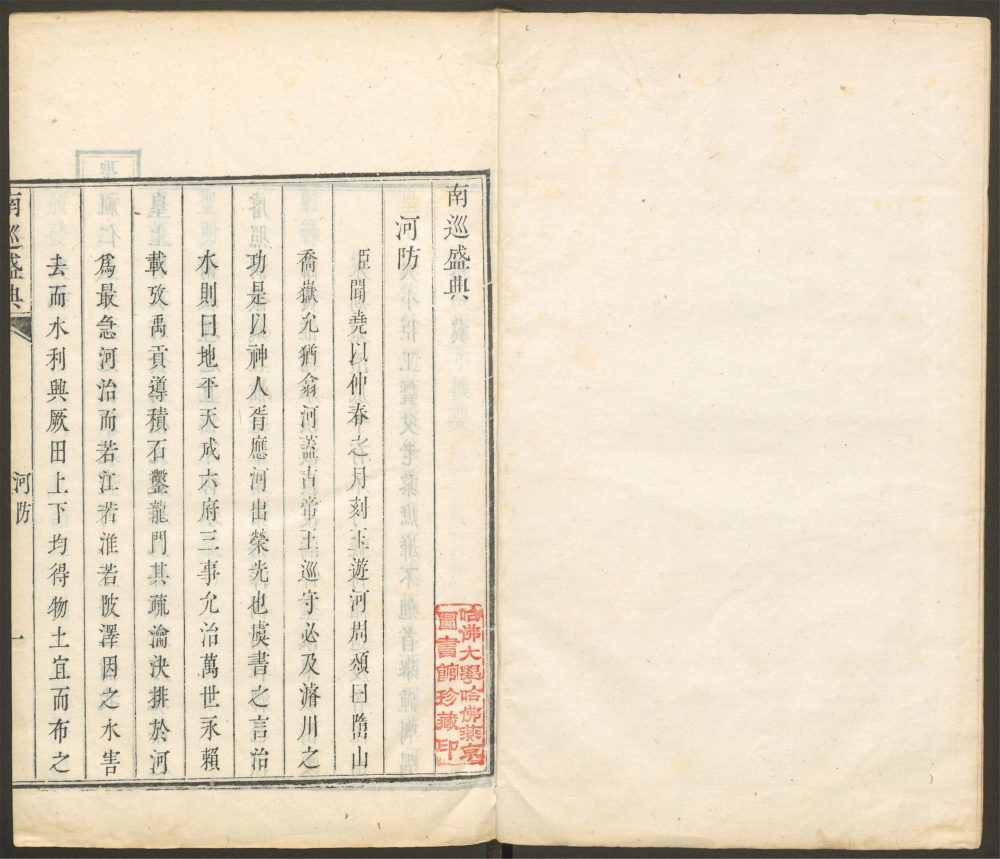 南巡盛典
河防
臣聞堯以仲春之月刻玉遊河周頌曰墮山
喬嶽允猶翕河蓋古帝王巡守必及濬川之
功是以神人胥應河出榮光也虞書之言治
水則曰地平天成六府三事允治萬世永賴
載攷禹貢導積石鑿龍門其疏瀹決排於河
為最急河治而若江若淮若陂澤因之水害
去而水利興厥田上下均得物土宜而布之
南巡盛典
河防
一
哈佛大學哈佛燕京
圖書館珍藏印